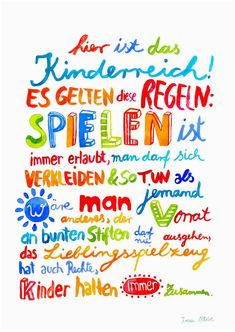 hier ist das
Kinderreich!
ES GELTEN diese REGELN:
SPIELEN ist
immer erlaubt, man darf sich
VERKLEIDEN & SO TUN als
wäre man jemand
anderes, der Vorrat
an bunten Stiften darf nie ausgehen,
das Lieblingsspielzeug
hat auch Rechte,
Kinder halten immer zusammen.